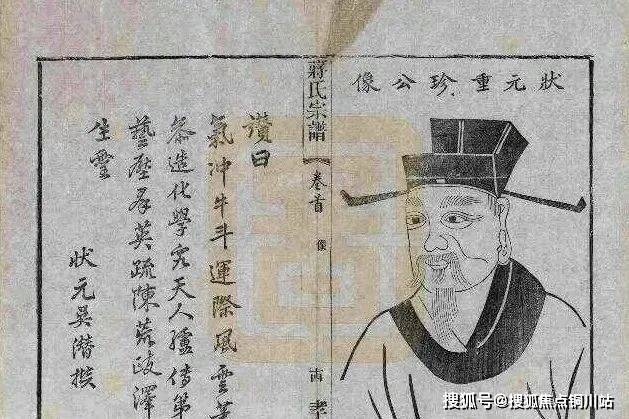 狀元重珍公像
蔣氏宗譜
卷首
像
讚曰
氣冲牛斗運際風雲
叅造化學究天人臚傳第
藝壓群英疏陳荒政澤
生靈
狀元吳潛撰
搜狐号@搜狐焦点铜川站